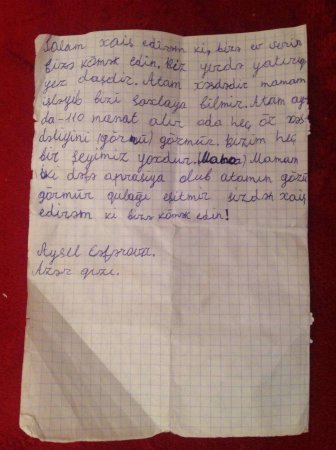 Salam xaiş edirəm ki, bizə ev verin
bizə kömək edin. Biz yerdə yatırıq
yer daşdır. Atam xəsdədir mamam
işləyib bizi saxlaya bilmir. Atam ay
da-110 manat alır oda heç öz xəs
dəliyini (görmü) görmür. Bizim heç
bir şeyimiz yoxdur. Mamam
iki dəfə aprasiya olub atamın gözü
görmür qulağı eşitmir sizdən xaiş
edirəm ki bizə kömək edin!
Aysel Cəfərova.
Azər qızı.